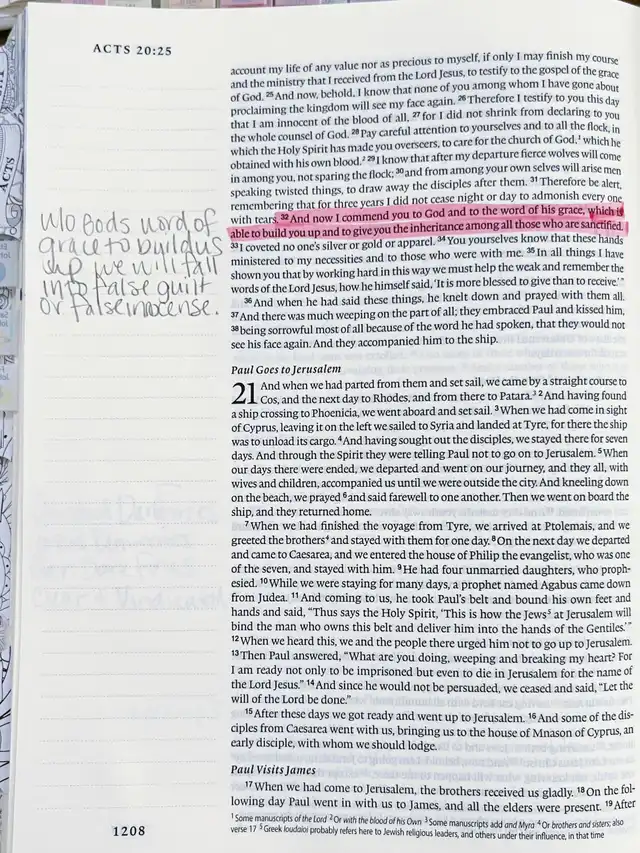 ACTS 20:25
account my life of any value nor as precious to myself, if only I may finish my course
and the ministry that I received from the Lord Jesus, to testify to the gospel of the grace
of God. 25 And now, behold, I know that none of you among whom I have gone about
proclaiming the kingdom will see my face again. 26 Therefore I testify to you this day
that I am innocent of the blood of all, 27 for I did not shrink from declaring to you
the whole counsel of God. 28 Pay careful attention to yourselves and to all the flock, in
which the Holy Spirit has made you overseers, to care for the church of God,1 which he
obtained with his own blood.2 29 I know that after my departure fierce wolves will come
in among you, not sparing the flock; 30 and from among your own selves will arise men
speaking twisted things, to draw away the disciples after them. 31 Therefore be alert,
remembering that for three years I did not cease night or day to admonish every one
with tears. 32 And now I commend you to God and to the word of his grace, which is
able to build you up and to give you the inheritance among all those who are sanctified.
33 I coveted no one's silver or gold or apparel. 34 You yourselves know that these hands
ministered to my necessities and to those who were with me. 35 In all things I have
shown you that by working hard in this way we must help the weak and remember the
words of the Lord Jesus, how he himself said, 'It is more blessed to give than to receive.'"
36 And when he had said these things, he knelt down and prayed with them all.
37 And there was much weeping on the part of all; they embraced Paul and kissed him,
38 being sorrowful most of all because of the word he had spoken, that they would not
see his face again. And they accompanied him to the ship.
W/o Gods word of
grace to build us
up we will fall
into false guilt
or false inocense.
Paul Goes to Jerusalem
21 And when we had parted from them and set sail, we came by a straight course to
Cos, and the next day to Rhodes, and from there to Patara.3 2 And having found
a ship crossing to Phoenicia, we went aboard and set sail. 3 When we had come in sight
of Cyprus, leaving it on the left we sailed to Syria and landed at Tyre, for there the ship
was to unload its cargo. 4 And having sought out the disciples, we stayed there for seven
days. And through the Spirit they were telling Paul not to go on to Jerusalem. 5 When
our days there were ended, we departed and went on our journey, and they all, with
wives and children, accompanied us until we were outside the city. And kneeling down
on the beach, we prayed 6 and said farewell to one another. Then we went on board the
ship, and they returned home.
7 When we had finished the voyage from Tyre, we arrived at Ptolemais, and we
greeted the brothers4 and stayed with them for one day. 8 On the next day we departed
and came to Caesarea, and we entered the house of Philip the evangelist, who was one
of the seven, and stayed with him. 9 He had four unmarried daughters, who proph-
esied. 10 While we were staying for many days, a prophet named Agabus came down
from Judea. 11 And coming to us, he took Paul's belt and bound his own feet and
hands and said, "Thus says the Holy Spirit, 'This is how the Jews5 at Jerusalem will
bind the man who owns this belt and deliver him into the hands of the Gentiles.'"
12 When we heard this, we and the people there urged him not to go up to Jerusalem.
13 Then Paul answered, "What are you doing, weeping and breaking my heart? For
I am ready not only to be imprisoned but even to die in Jerusalem for the name of
the Lord Jesus." 14 And since he would not be persuaded, we ceased and said, "Let the
will of the Lord be done."
15 After these days we got ready and went up to Jerusalem. 16 And some of the dis-
ciples from Caesarea went with us, bringing us to the house of Mnason of Cyprus, an
early disciple, with whom we should lodge.
Paul Visits James
17 When we had come to Jerusalem, the brothers received us gladly. 18 On the fol-
lowing day Paul went in with us to James, and all the elders were present. 19 After
1 Some manuscripts of the Lord 2 Or with the blood of his Own 3 Some manuscripts add and Myra 4 Or brothers and sisters; also
verse 17 5 Greek Ioudaioi probably refers here to Jewish religious leaders, and others under their influence, in that time
1208
ACTS